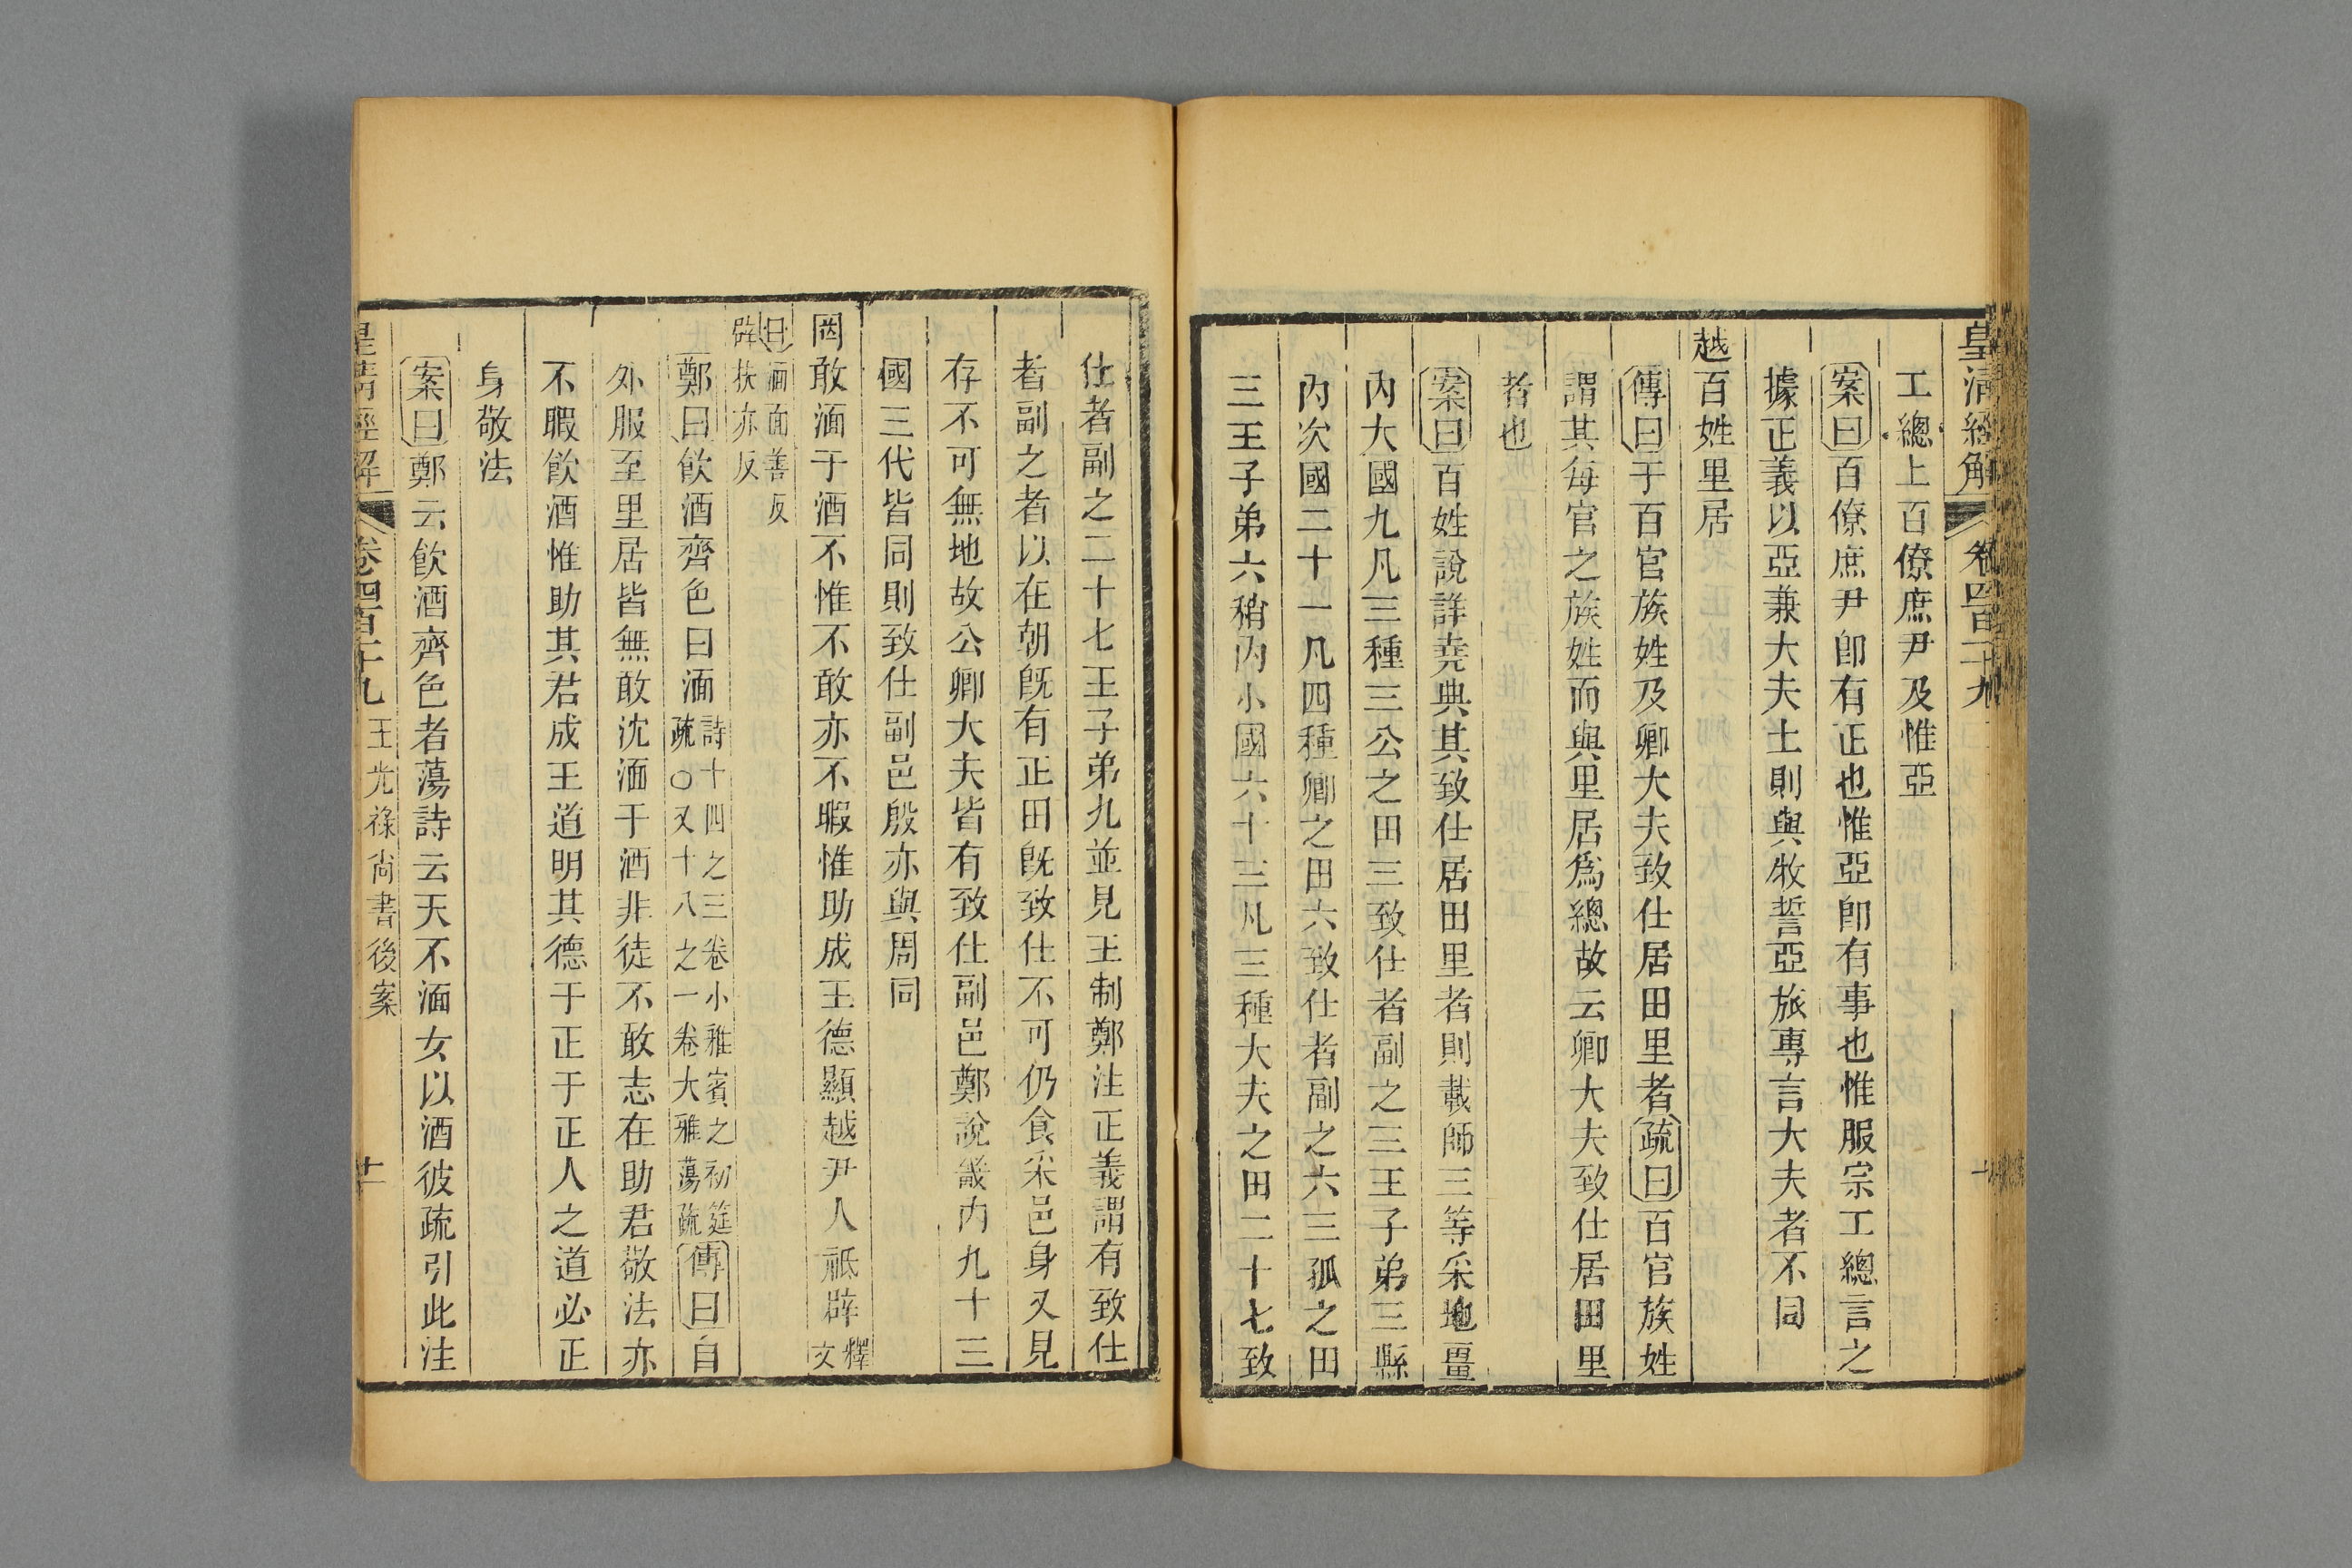 皇清經解 卷四百二十九
工總上百僚庶尹及惟亞
案曰百僚庶尹卽有正也惟亞卽有事也惟服宗工總言之
據正義以亞兼大夫士則與牧誓亞旅專言大夫者不同
越百姓里居
傳曰于百官族姓及卿大夫致仕居田里者疏曰百官族姓
謂其每官之族姓而與里居爲總故云卿大夫致仕居田里
者也
案曰百姓說詳堯典其致仕居田里者則載師三等采地畺
內大國九凡三種三公之田三致仕者副之三王子弟三縣
內次國二十一凡四種卿之田六致仕者副之六三孤之田
三王子弟六稍內小國六十三凡三種大夫之田二十七致
仕者副之二十七王子弟九並見王制鄭注正義謂有致仕
者副之者以在朝旣有正田旣致仕不可仍食采邑身又見
存不可無地故公卿大夫皆有致仕副邑鄭說畿內九十三
國三代皆同則致仕副邑殷亦與周同
罔敢湎于酒不惟不敢亦不暇惟助成王德顯越尹人祗辟釋文
曰湎面善反
辟扶亦反
鄭曰飮酒齊色曰湎詩十四之三卷小雅賓之初筵疏○又十八之一卷大雅蕩疏傳曰自
外服至里居皆無敢沈湎于酒非徒不敢志在助君敬法亦
不暇飮酒惟助其君成王道明其德于正于正人之道必正
身敬法
案曰鄭云飮酒齊色者蕩詩云天不湎女以酒彼疏引此注
皇清經解 卷四百二十九 王光祿尚書後案 十一